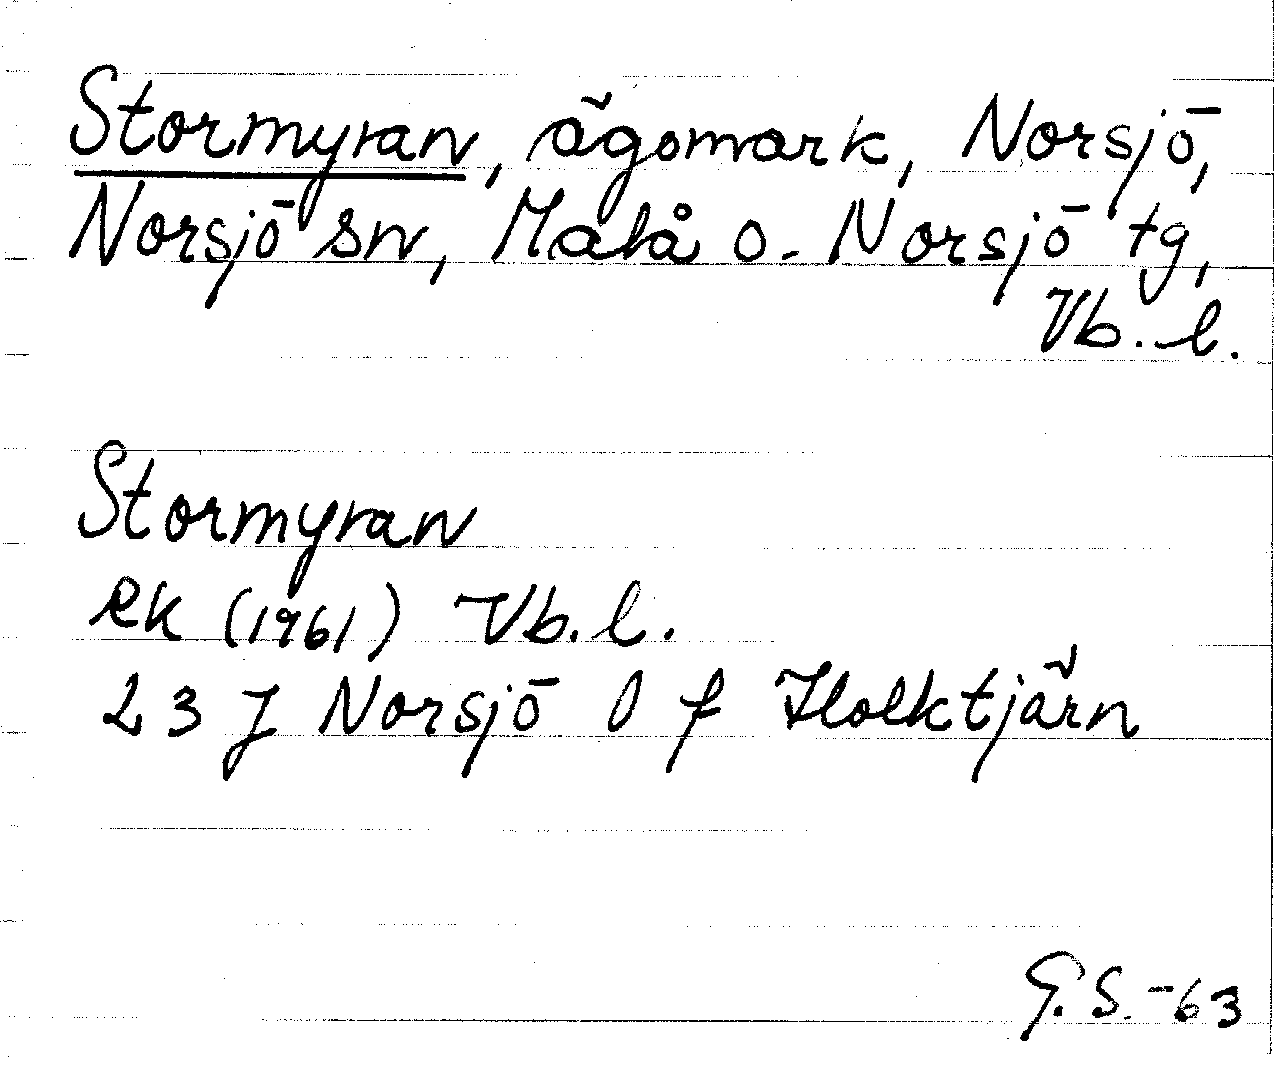 Stormyran, ägomark, Norsjö,
Norsjö sn, Malå o. Norsjö tg,
Vb. l.
Stormyran
ek (1961) Vb. l.
23 J Norsjö 0 f Holktjärn
G.S. -63